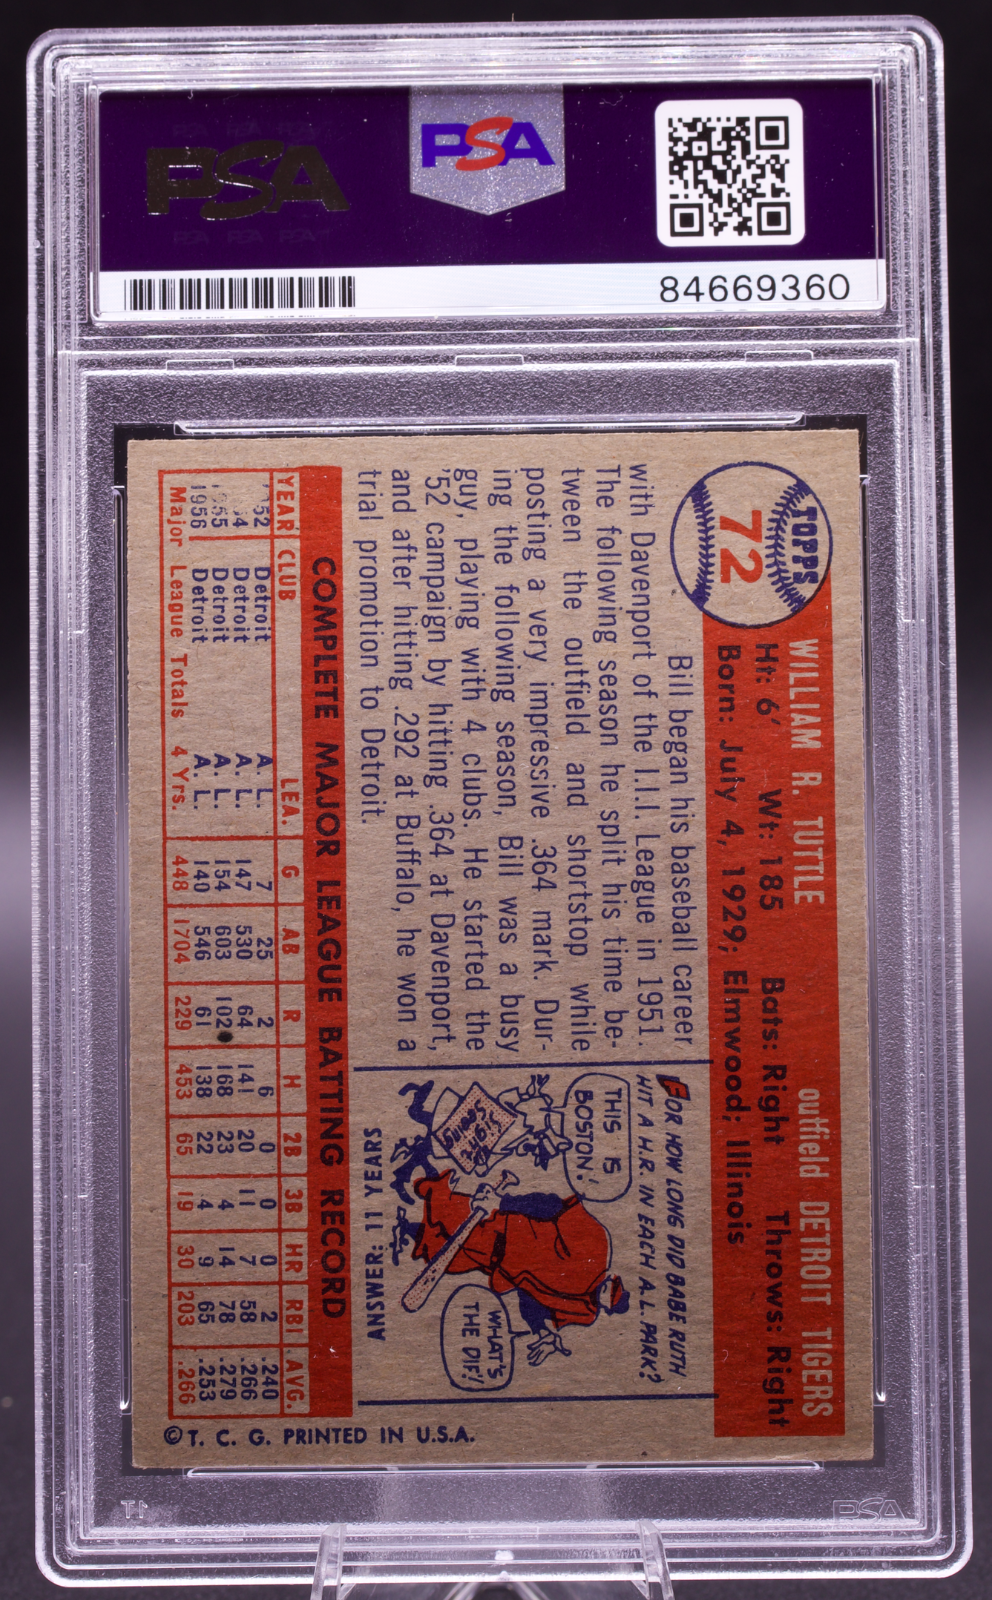 PSA
PSA
84669360
TOPPS
72
WILLIAM R. TUTTLE outfield DETROIT TIGERS
Ht: 6' Wt: 185 Bats: Right Throws: Right
Born: July 4, 1929; Elmwood; Illinois
Bill began his baseball career
with Davenport of the I.I.I. League in 1951.
The following season he split his time be-
tween the outfield and shortstop while
posting a very impressive .364 mark. Dur-
ing the following season, Bill was a busy
guy, playing with 4 clubs. He started the
'52 campaign by hitting .364 at Davenport,
and after hitting .292 at Buffalo, he won a
trial promotion to Detroit.
FOR HOW LONG DID BABE RUTH
HIT A H.R. IN EACH A.L. PARK?
THIS IS
BOSTON!
WHAT'S
THE DIF!
ANSWER: 11 YEARS
COMPLETE MAJOR LEAGUE BATTING RECORD
YEAR CLUB LEA. G AB R H 2B 3B HR RBI AVG.
52 Detroit A. L. 7 25 2 6 0 0 0 2 .240
54 Detroit A. L. 147 530 64 141 20 11 7 58 .266
55 Detroit A. L. 154 603 102 168 23 4 14 78 .279
1956 Detroit A. L. 140 546 61 138 22 4 9 65 .253
Major League Totals 4 Yrs. 448 1704 229 453 65 19 30 203 .266
© T. C. G. PRINTED IN U.S.A.
PSA